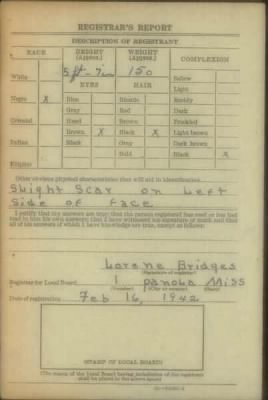 REGISTRAR'S REPORT
DESCRIPTION OF REGISTRANT
RACE HEIGHT (Approx.) WEIGHT (Approx.) COMPLEXION
5 ft - 7 in 150
White Sallow
EYES HAIR Light
Negro X Blue Blonde Ruddy
Gray Red Dark
Oriental Hazel Brown Freckled
Brown X Black X Light brown
Indian Black Gray Dark brown
Bald Black X
Filipino
Other obvious physical characteristics that will aid in identification
Slight Scar on Left
Side of Face
I certify that my answers are true; that the person registered has read or has had
read to him his own answers; that I have witnessed his signature or mark and that
all of his answers of which I have knowledge are true, except as follows:
Lorene Bridges
(Signature of registrar)
Registrar for Local Board 1 Panola Miss
(Number) (City or county) (State)
Date of registration Feb 16, 1942
(STAMP OF LOCAL BOARD)
(The stamp of the Local Board having jurisdiction of the registrant
shall be placed in the above space)